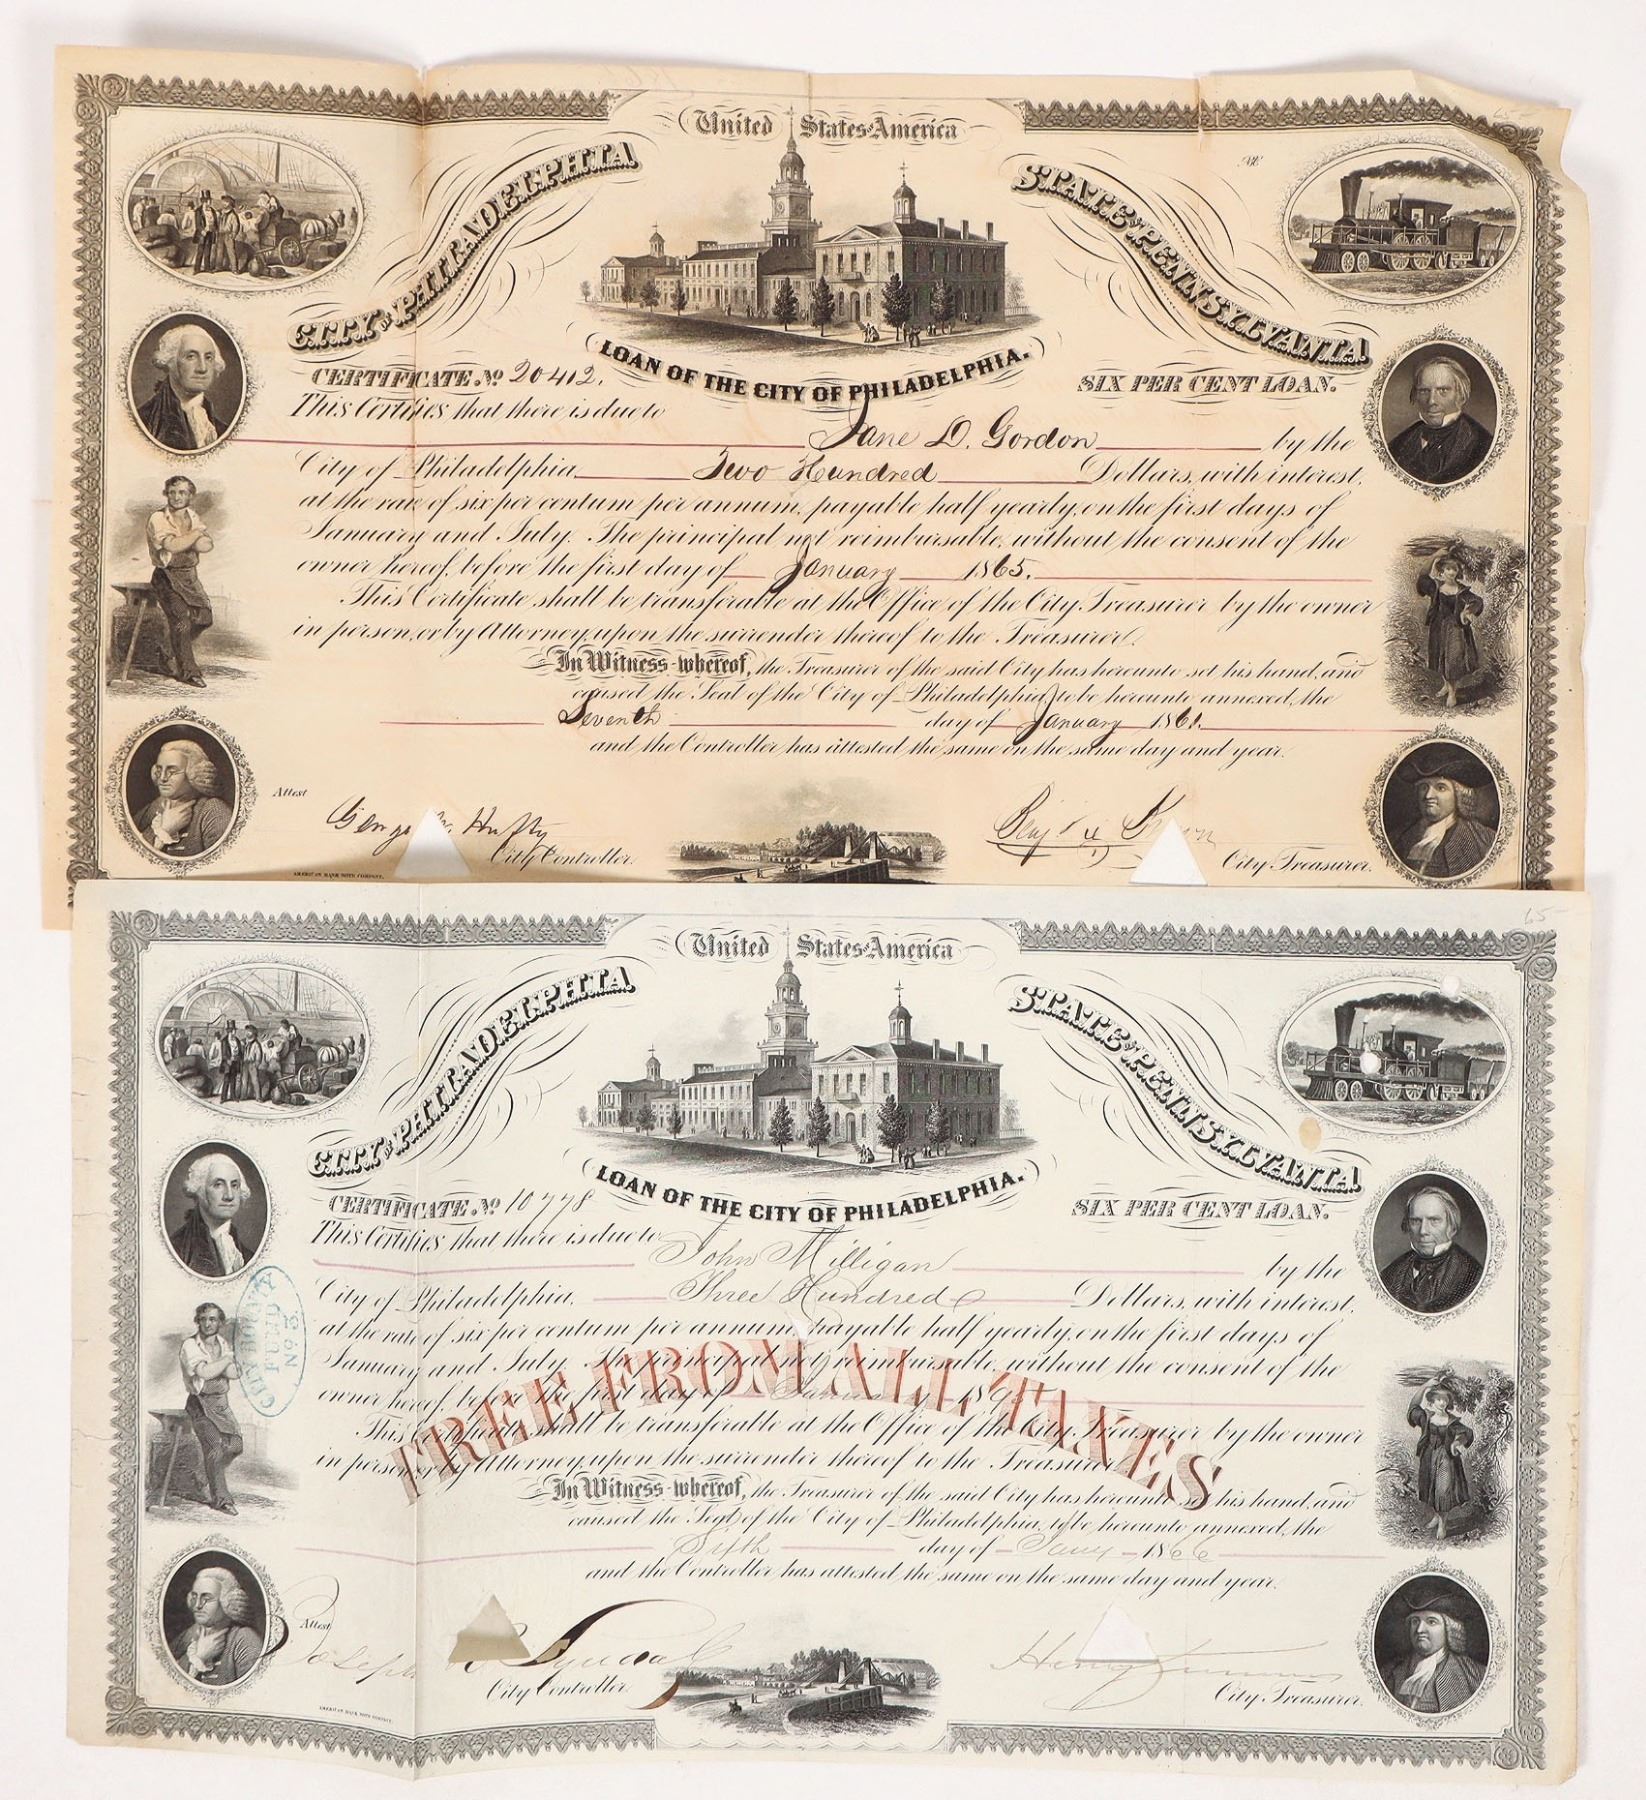 United States of America
City of Philadelphia
State of Pennsylvania
Loan of the City of Philadelphia.
Certificate No 20412.
Six Per Cent Loan.
This Certifies that there is due to
Jane D. Gordon by the
City of Philadelphia Two Hundred Dollars, with interest,
at the rate of six per centum per annum, payable half yearly, on the first days of
January and July. The principal not reimbursable, without the consent of the
owner hereof, before the first day of January 1865.
This Certificate shall be transferable at the Office of the City Treasurer by the owner
in person, or by Attorney, upon the surrender thereof to the Treasurer.
In Witness whereof, the Treasurer of the said City has hereunto set his hand, and
caused the Seal of the City of Philadelphia, to be hereunto annexed, the
Seventh day of January 1861.
and the Controller has attested the same on the same day and year.
Attest
George W. Hufty
City Controller.
City Treasurer.
American Bank Note Company.
65
United States of America
City of Philadelphia
State of Pennsylvania
Loan of the City of Philadelphia.
Certificate No 10778
Six Per Cent Loan.
This Certifies that there is due to
John Milligan by the
City of Philadelphia, Three Hundred Dollars, with interest,
at the rate of six per centum per annum, payable half yearly, on the first days of
January and July. The principal not reimbursable, without the consent of the
owner hereof, before the first day of January
FREE FROM ALL TAXES
This Certificate shall be transferable at the Office of the City Treasurer by the owner
in person, or by Attorney, upon the surrender thereof to the Treasurer
In Witness whereof, the Treasurer of the said City has hereunto set his hand, and
caused the Seal of the City of Philadelphia, to be hereunto annexed, the
Fifth day of 1866
and the Controller has attested the same on the same day and year.
CITY BOUNTY
FUND
No 3.
Attest
Joseph
City Controller.
Henry
City Treasurer.
American Bank Note Company.